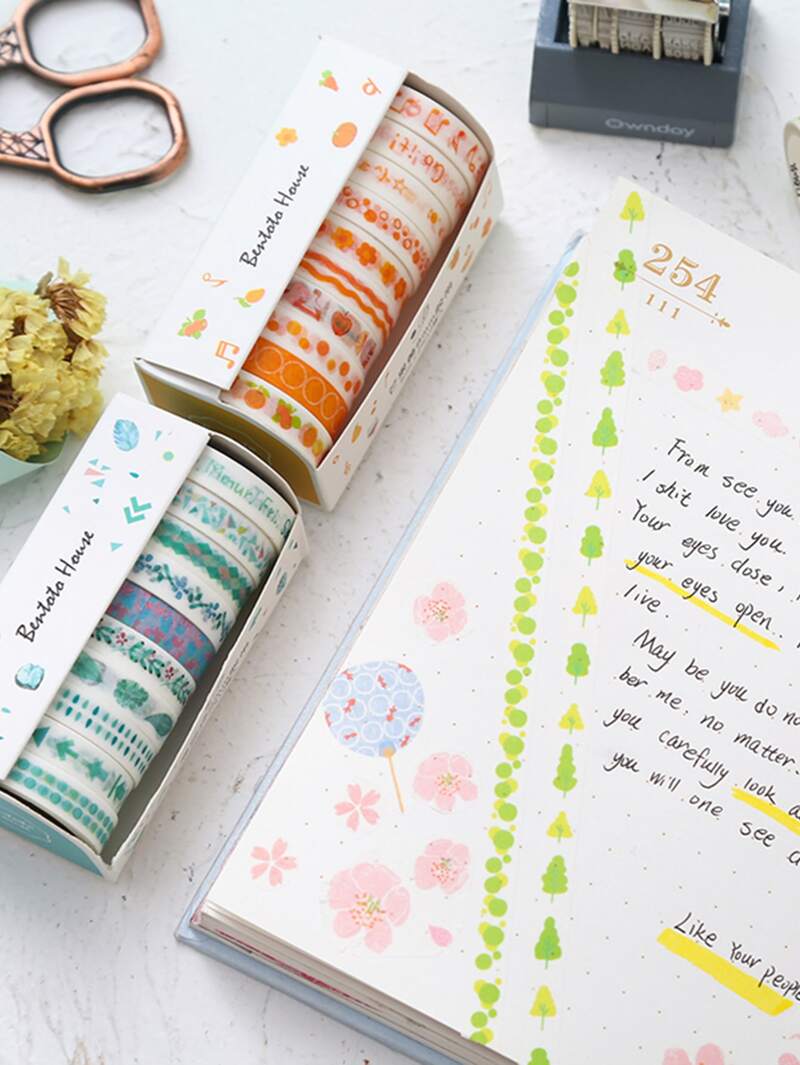 Ownday
Bentoto House
Bentoto House
254
111
From see you.
I shit love you.
Your eyes close,
your eyes open.
live.
May be you do no
ber me. no matter.
you carefully look a
you will one see a
Like Your people